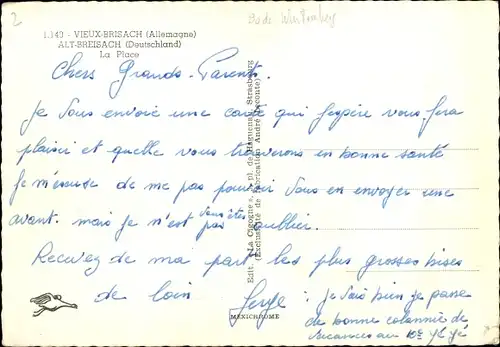 2
1.143 - VIEUX-BRISACH (Allemagne)
ALT-BREISACH (Deutschland)
La Place
Chers Grands-Parents.
Je vous envoie une carte qui j'espère vous fera
plaisir et quelle vous trouverons en bonne santé
Je m'éxcuse de me pas pouvoir vous en envoyer une
avant. mais je n'est pas vous êtes oublier.
Recevez de ma part les plus grosses bises
de loin Serge : je vais bien je passe
de bonne colonnie de
vacances au
Edit. "La Cigogne", pl. de l'Homme de Fer, Strasbourg
(Exclusivité de Fabrication André Leconte)
MEXICHROME